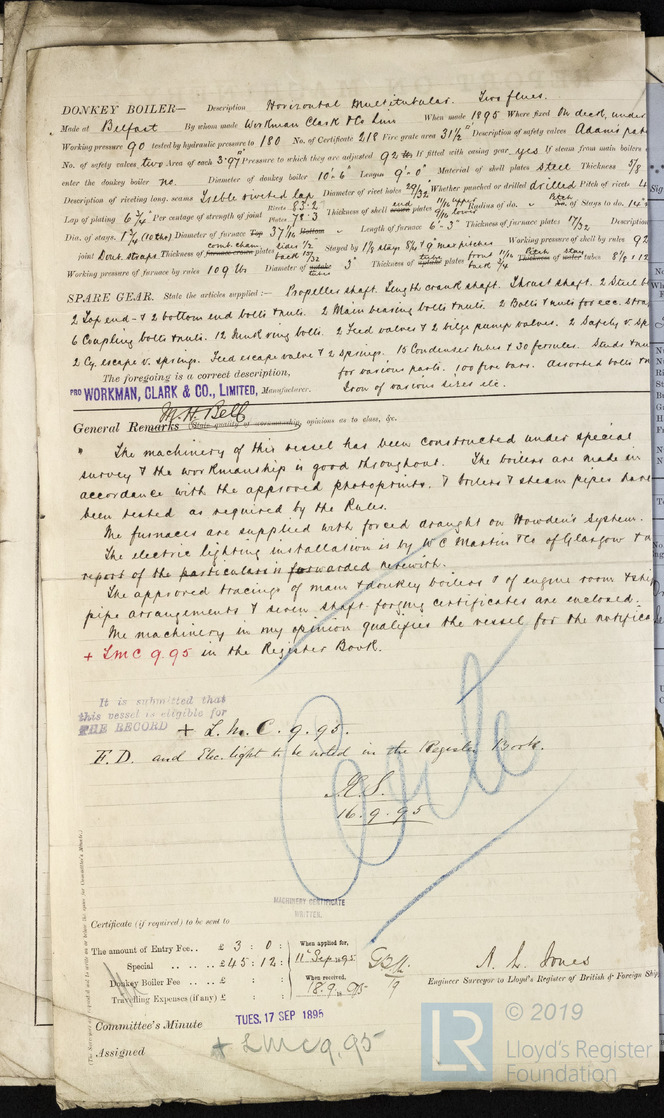 DONKEY BOILER— Description Horizontal Multitubular. Two flues.
Made at Belfast By whom made Workman Clark & Co Lim When made 1895 Where fixed On deck, under
Working pressure 90 tested by hydraulic pressure to 180 No. of Certificate 218 Fire grate area 31½ Description of safety valves Adams pat
No. of safety valves two Area of each 3.97" Pressure to which they are adjusted 92 lb If fitted with easing gear yes If steam from main boilers
enter the donkey boiler no. Diameter of donkey boiler 10'-6" Length 9'-0" Material of shell plates Steel Thickness 5/8
Description of riveting long. seams Treble riveted lap Diameter of rivet holes 29/32 Whether punched or drilled drilled Pitch of rivets 4
Lap of plating 6 3/4" Per centage of strength of joint Rivets 83.2 Plates 78.3 Thickness of shell end plates 11/16 upp 9/16 lower Radius of do. Pitch of Stays to do. 14"
Dia. of stays. 1 3/4 (10 thds) Diameter of furnace Top 37 1/16 Bottom Length of furnace 6'-3" Thickness of furnace plates 17/32 Description
joint Doub. straps Thickness of comb. cham. plates sides 1/2 back 17/32 Stayed by 1 1/8 stays Working pressure of shell by rules 92
Working pressure of furnace by rules 109 lb Diameter of tube 3" Thickness of tube plates front 11/16 back 3/4 Pitch of tubes
SPARE GEAR. State the articles supplied:— Propeller shaft. Length crank shaft. Thrust shaft. 2 Steel b
2 Top end & 2 bottom end bolts & nuts. 2 Main bearing bolts & nuts. 2 Bolts & nuts for ecc. strap
6 Coupling bolts & nuts. 12 Junk ring bolts. 2 Feed valves & 2 bilge pump valves. 2 Safety v. sp
2 Cy. escape v. springs. Feed escape valve & 2 springs. 15 Condenser tubes & 30 ferrules. Studs & nu
for various parts. 100 fire bars. Assorted bolts & n
The foregoing is a correct description,
Iron of various sizes etc.
PRO WORKMAN, CLARK & CO., LIMITED, Manufacturer.
M. H. Bell
General Remarks (State quality of workmanship, opinions as to class, &c.
The machinery of this vessel has been constructed under special
survey & the workmanship is good throughout. The boilers are made in
accordance with the approved photoprints. & boilers & steam pipes have
been tested as required by the Rules.
The furnaces are supplied with forced draught on Howden's system.
The electric lighting installation is by W C Martin & Co of Glasgow & a
report of the particulars is forwarded herewith.
The approved tracings of main & donkey boilers & of engine room & ship
pipe arrangements & seven shaft forging certificates are enclosed.
The machinery in my opinion qualifies the vessel for the notifica
+ LMC 9.95 in the Register Book.
It is submitted that
this vessel is eligible for
THE RECORD + L.M.C. 9.95.
F.D. and Elec. light to be noted in the Register Book.
16.9.95
MACHINERY CERTIFICATE
WRITTEN.
Certificate (if required) to be sent to
The amount of Entry Fee.. £ 3 : 0 : When applied for,
Special .. .. .. £ 45 : 12 : 11th Sept 1895
Donkey Boiler Fee .. .. £ : : When received,
Travelling Expenses (if any) £ : : 18.9.1895
A. L. Jones
Engineer Surveyor to Lloyd's Register of British & Foreign Ship
Committee's Minute TUES. 17 SEP 1895
Assigned + LMC 9.95
© 2019
LR
Lloyd's Register
Foundation